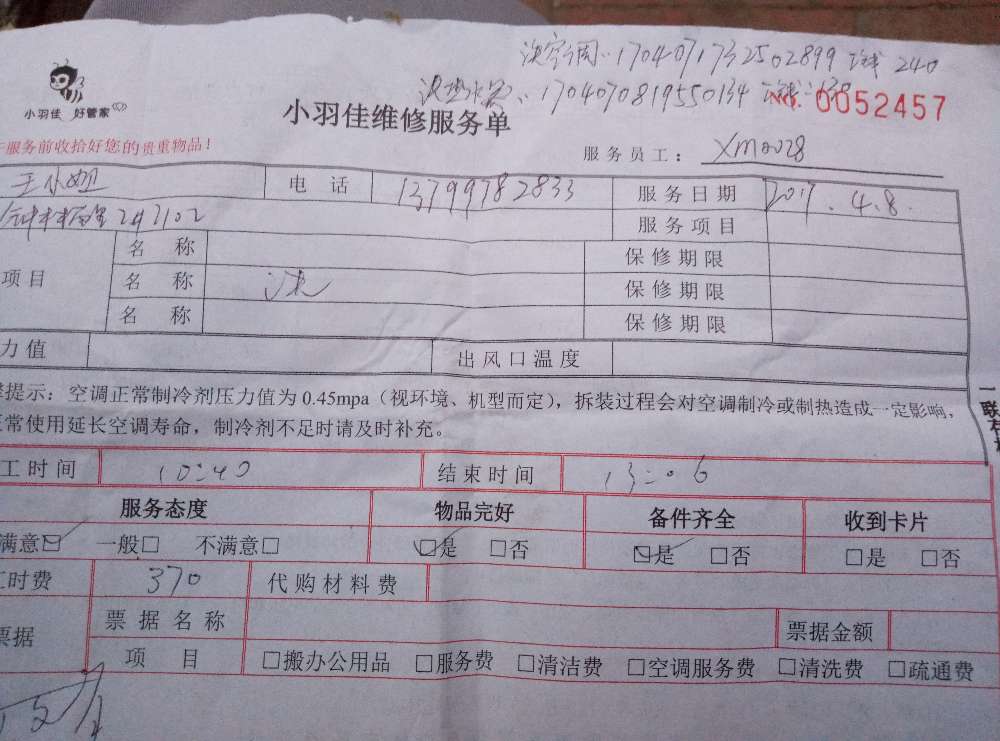 洗空调:1704071732502899 240
洗热水器:1704070819550134
No. 0052457
小羽佳 好管家
小羽佳维修服务单
服务前收拾好您的贵重物品!
服务员工: XM0028
王小姐 电话 13799782833 服务日期 2017.4.8.
服务项目
项目 名称 保修期限
名称 洗 保修期限
名称 保修期限
力值 出风口温度
提示:空调正常制冷剂压力值为 0.45mpa(视环境、机型而定),拆装过程会对空调制冷或制热造成一定影响,
常使用延长空调寿命,制冷剂不足时请及时补充。
工时间 10:40 结束时间 13:06
服务态度 物品完好 备件齐全 收到卡片
满意☑ 一般□ 不满意□ ☑是 □否 ☑是 □否 □是 □否
工时费 370 代购材料费
票据 票据名称 票据金额
项目 □搬办公用品 □服务费 □清洁费 □空调服务费 □清洗费 □疏通费
一联